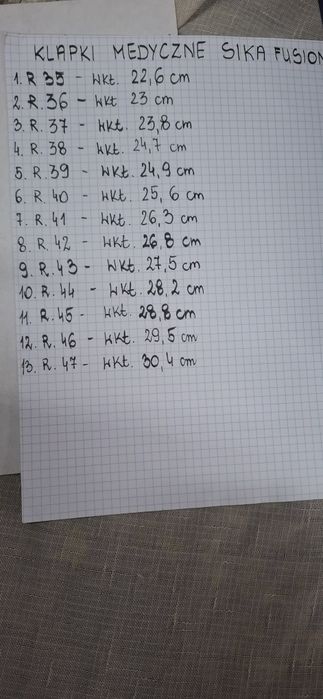 KLAPKI MEDYCZNE SIKA FUSION
1. R 35 - wkt. 22,6 cm
2. R. 36 - wkt 23 cm
3. R. 37 - wkt. 23,8 cm
4. R. 38 - wkt. 24,7 cm
5. R. 39 - wkt. 24,9 cm
6. R. 40 - wkt. 25,6 cm
7. R. 41 - wkt. 26,3 cm
8. R 42 - wkt. 26,8 cm
9. R. 43 - wkt. 27,5 cm
10. R. 44 - wkt. 28,2 cm
11. R. 45 - wkt. 28,8 cm
12. R. 46 - wkt. 29,5 cm
13. R. 47 - wkt. 30,4 cm